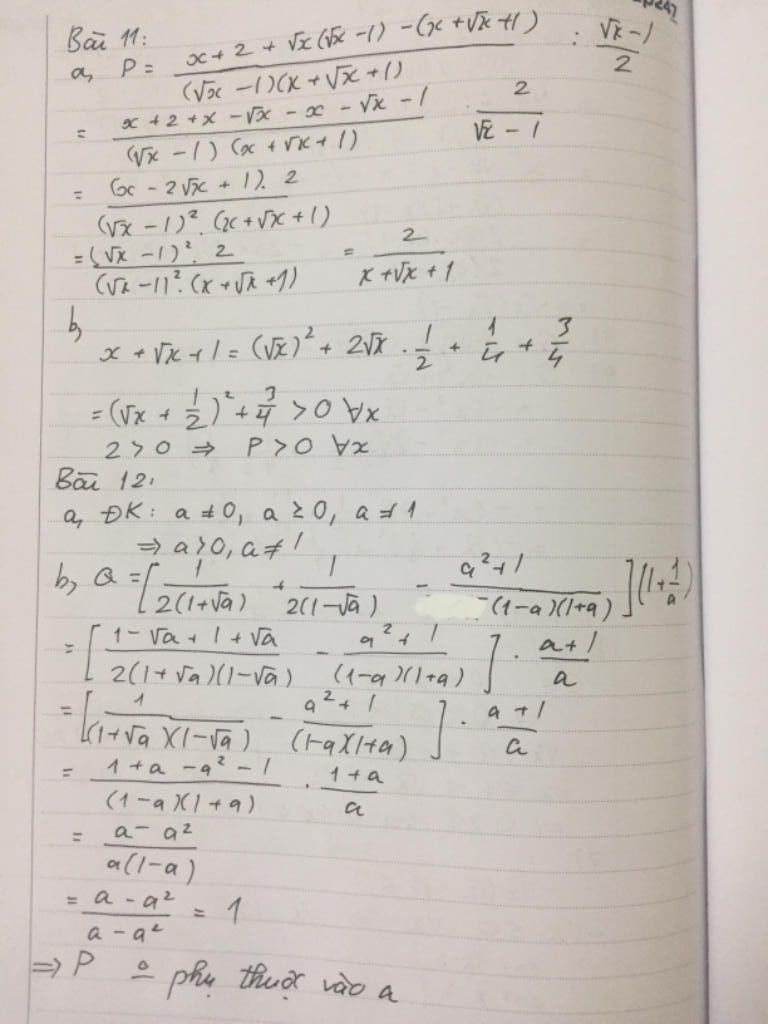 Bài 11:
a, P = (x + 2 + √x(√x - 1) - (x + √x + 1)) / ((√x - 1)(x + √x + 1)) : (√x - 1)/2
= (x + 2 + x - √x - x - √x - 1) / ((√x - 1)(x + √x + 1)) . 2/(√x - 1)
= ((x - 2√x + 1). 2) / ((√x - 1)². (x + √x + 1))
= ((√x - 1)². 2) / ((√x - 1)². (x + √x + 1)) = 2/(x + √x + 1)
b,
x + √x + 1 = (√x)² + 2√x . 1/2 + 1/4 + 3/4
= (√x + 1/2)² + 3/4 > 0 ∀x
2 > 0 ⇒ P > 0 ∀x
Bài 12:
a, ĐK: a ≠ 0, a ≥ 0, a ≠ 1
⇒ a > 0, a ≠ 1
b, Q = [1/(2(1+√a)) + 1/(2(1-√a)) - (a²+1)/((1-a)(1+a))](1+1/a)
= [(1-√a + 1 + √a)/(2(1+√a)(1-√a)) - (a²+1)/((1-a)(1+a))] . (a+1)/a
= [1/((1+√a)(1-√a)) - (a²+1)/((1-a)(1+a))] . (a+1)/a
= (1+a - a² - 1)/((1-a)(1+a)) . (1+a)/a
= (a - a²)/(a(1-a))
= (a - a²)/(a - a²) = 1
⇒ P o phụ thuộc vào a